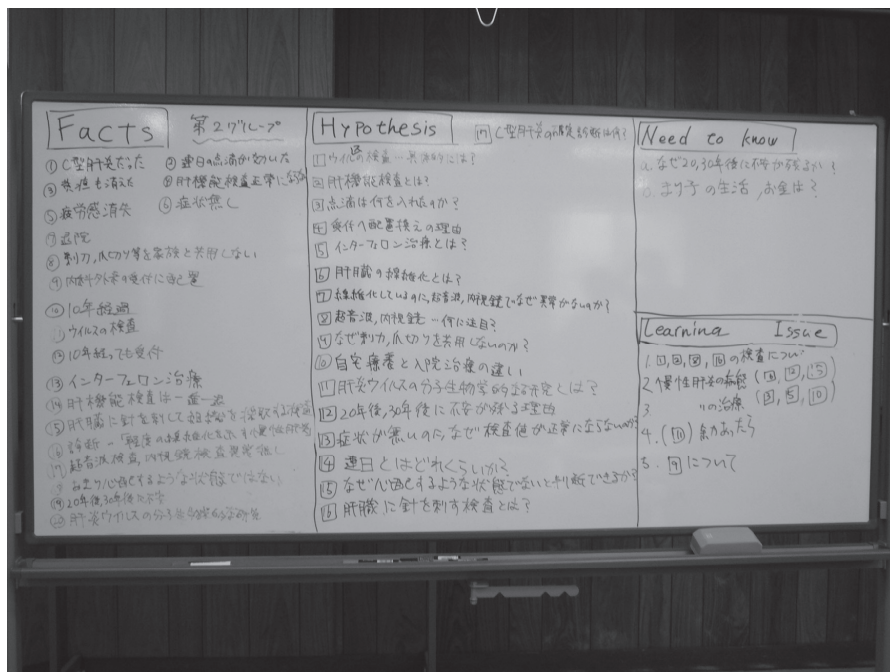 Facts 第2グループ
① C型肝炎だった ② 連日の点滴がきいた
③ 黄疸も消えた ④ 肝機能検査正常に
⑤ 疲労感消失 ⑥ 症状無し
⑦ 退院
⑧ 剃刀、爪切り等を家族と共用しない
⑨ 内科外来の受付に配置
⑩ 10年経過
⑪ ウイルスの検査
⑫ 10年経っても受付
⑬ インターフェロン治療
⑭ 肝機能検査は一進一退
⑮ 肝臓に針を刺して組織を採取する検査
⑯ 診断 - 「軽度の線維化を示す慢性肝炎
⑰ 超音波検査、内視鏡検査異常無し
あまり心配するような状態ではない
⑲ 20年後、30年後に不安
⑳ 肝炎ウイルスの分子生物学的な研究
Hypothesis 17 C型肝炎の確定診断は何?
1 ウイルスの検査…具体的には?
2 肝機能検査とは?
3 点滴は何を入れたのか?
4 受付へ配置換えの理由
5 インターフェロン治療とは?
6 肝臓の線維化とは?
7 線維化しているのに、超音波、内視鏡でなぜ異常がないのか?
8 超音波、内視鏡…何に注目?
9 なぜ剃刀、爪切りを共用しないのか?
10 自宅療養と入院治療の違い
11 肝炎ウイルスの分子生物学的な研究とは?
12 20年後、30年後に不安が残る理由
13 症状が無いのに、なぜ検査値が正常にならないのか?
14 連日とはどれくらいか?
15 なぜ心配するような状態でないと判断できるか?
16 肝臓に針を刺す検査とは?
Need to know
a. なぜ20,30年後に不安が残るか?
b. まり子の生活、お金は?
Learning Issue
1. 1, 2, 8, 16 の検査について
2. 慢性肝炎の病態 (6, 12, 15)
3 〃の治療 (3, 5, 10)
4. (11) 余力あったら
5. 9 について